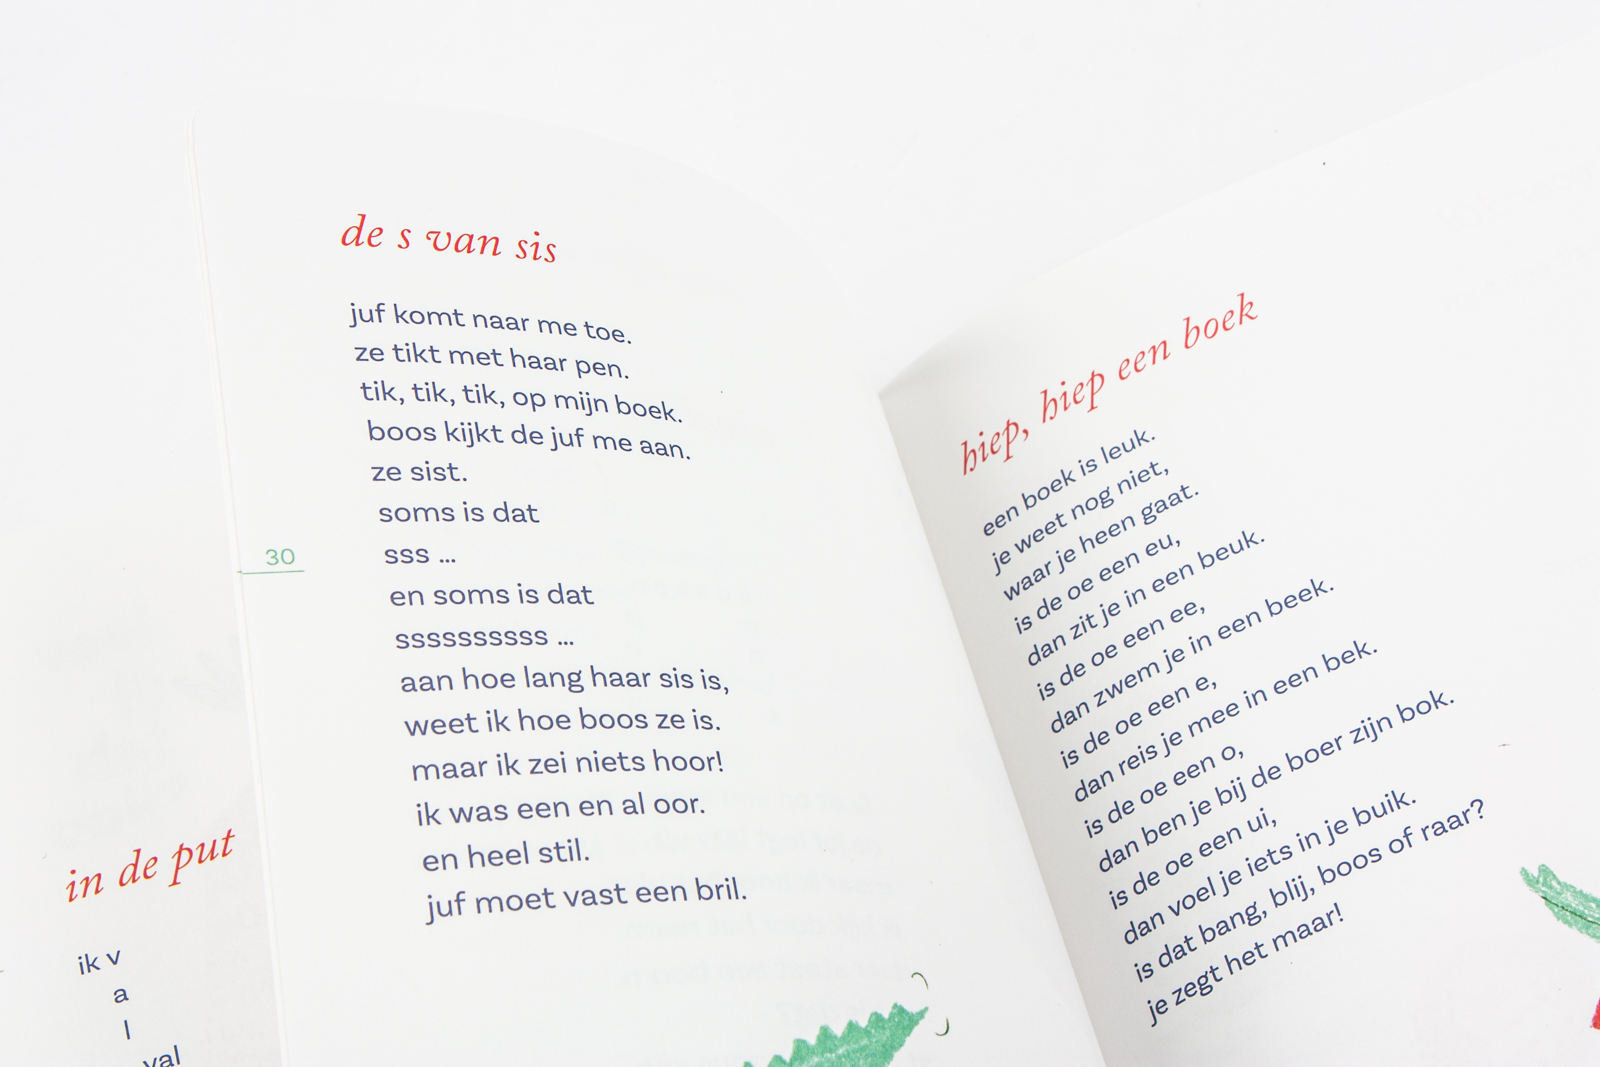 de s van sis
juf komt naar me toe.
ze tikt met haar pen.
tik, tik, tik, op mijn boek.
boos kijkt de juf me aan.
ze sist.
soms is dat
sss ...
en soms is dat
ssssssssss ...
aan hoe lang haar sis is,
weet ik hoe boos ze is.
maar ik zei niets hoor!
ik was een en al oor.
en heel stil.
juf moet vast een bril.
30
hiep, hiep een boek
een boek is leuk.
je weet nog niet,
waar je heen gaat.
is de oe een eu,
dan zit je in een beuk.
is de oe een ee,
dan zwem je in een beek.
is de oe een e,
dan reis je mee in een bek.
is de oe een o,
dan ben je bij de boer zijn bok.
is de oe een ui,
dan voel je iets in je buik.
is dat bang, blij, boos of raar?
je zegt het maar!
in de put
ik v
a
l
val